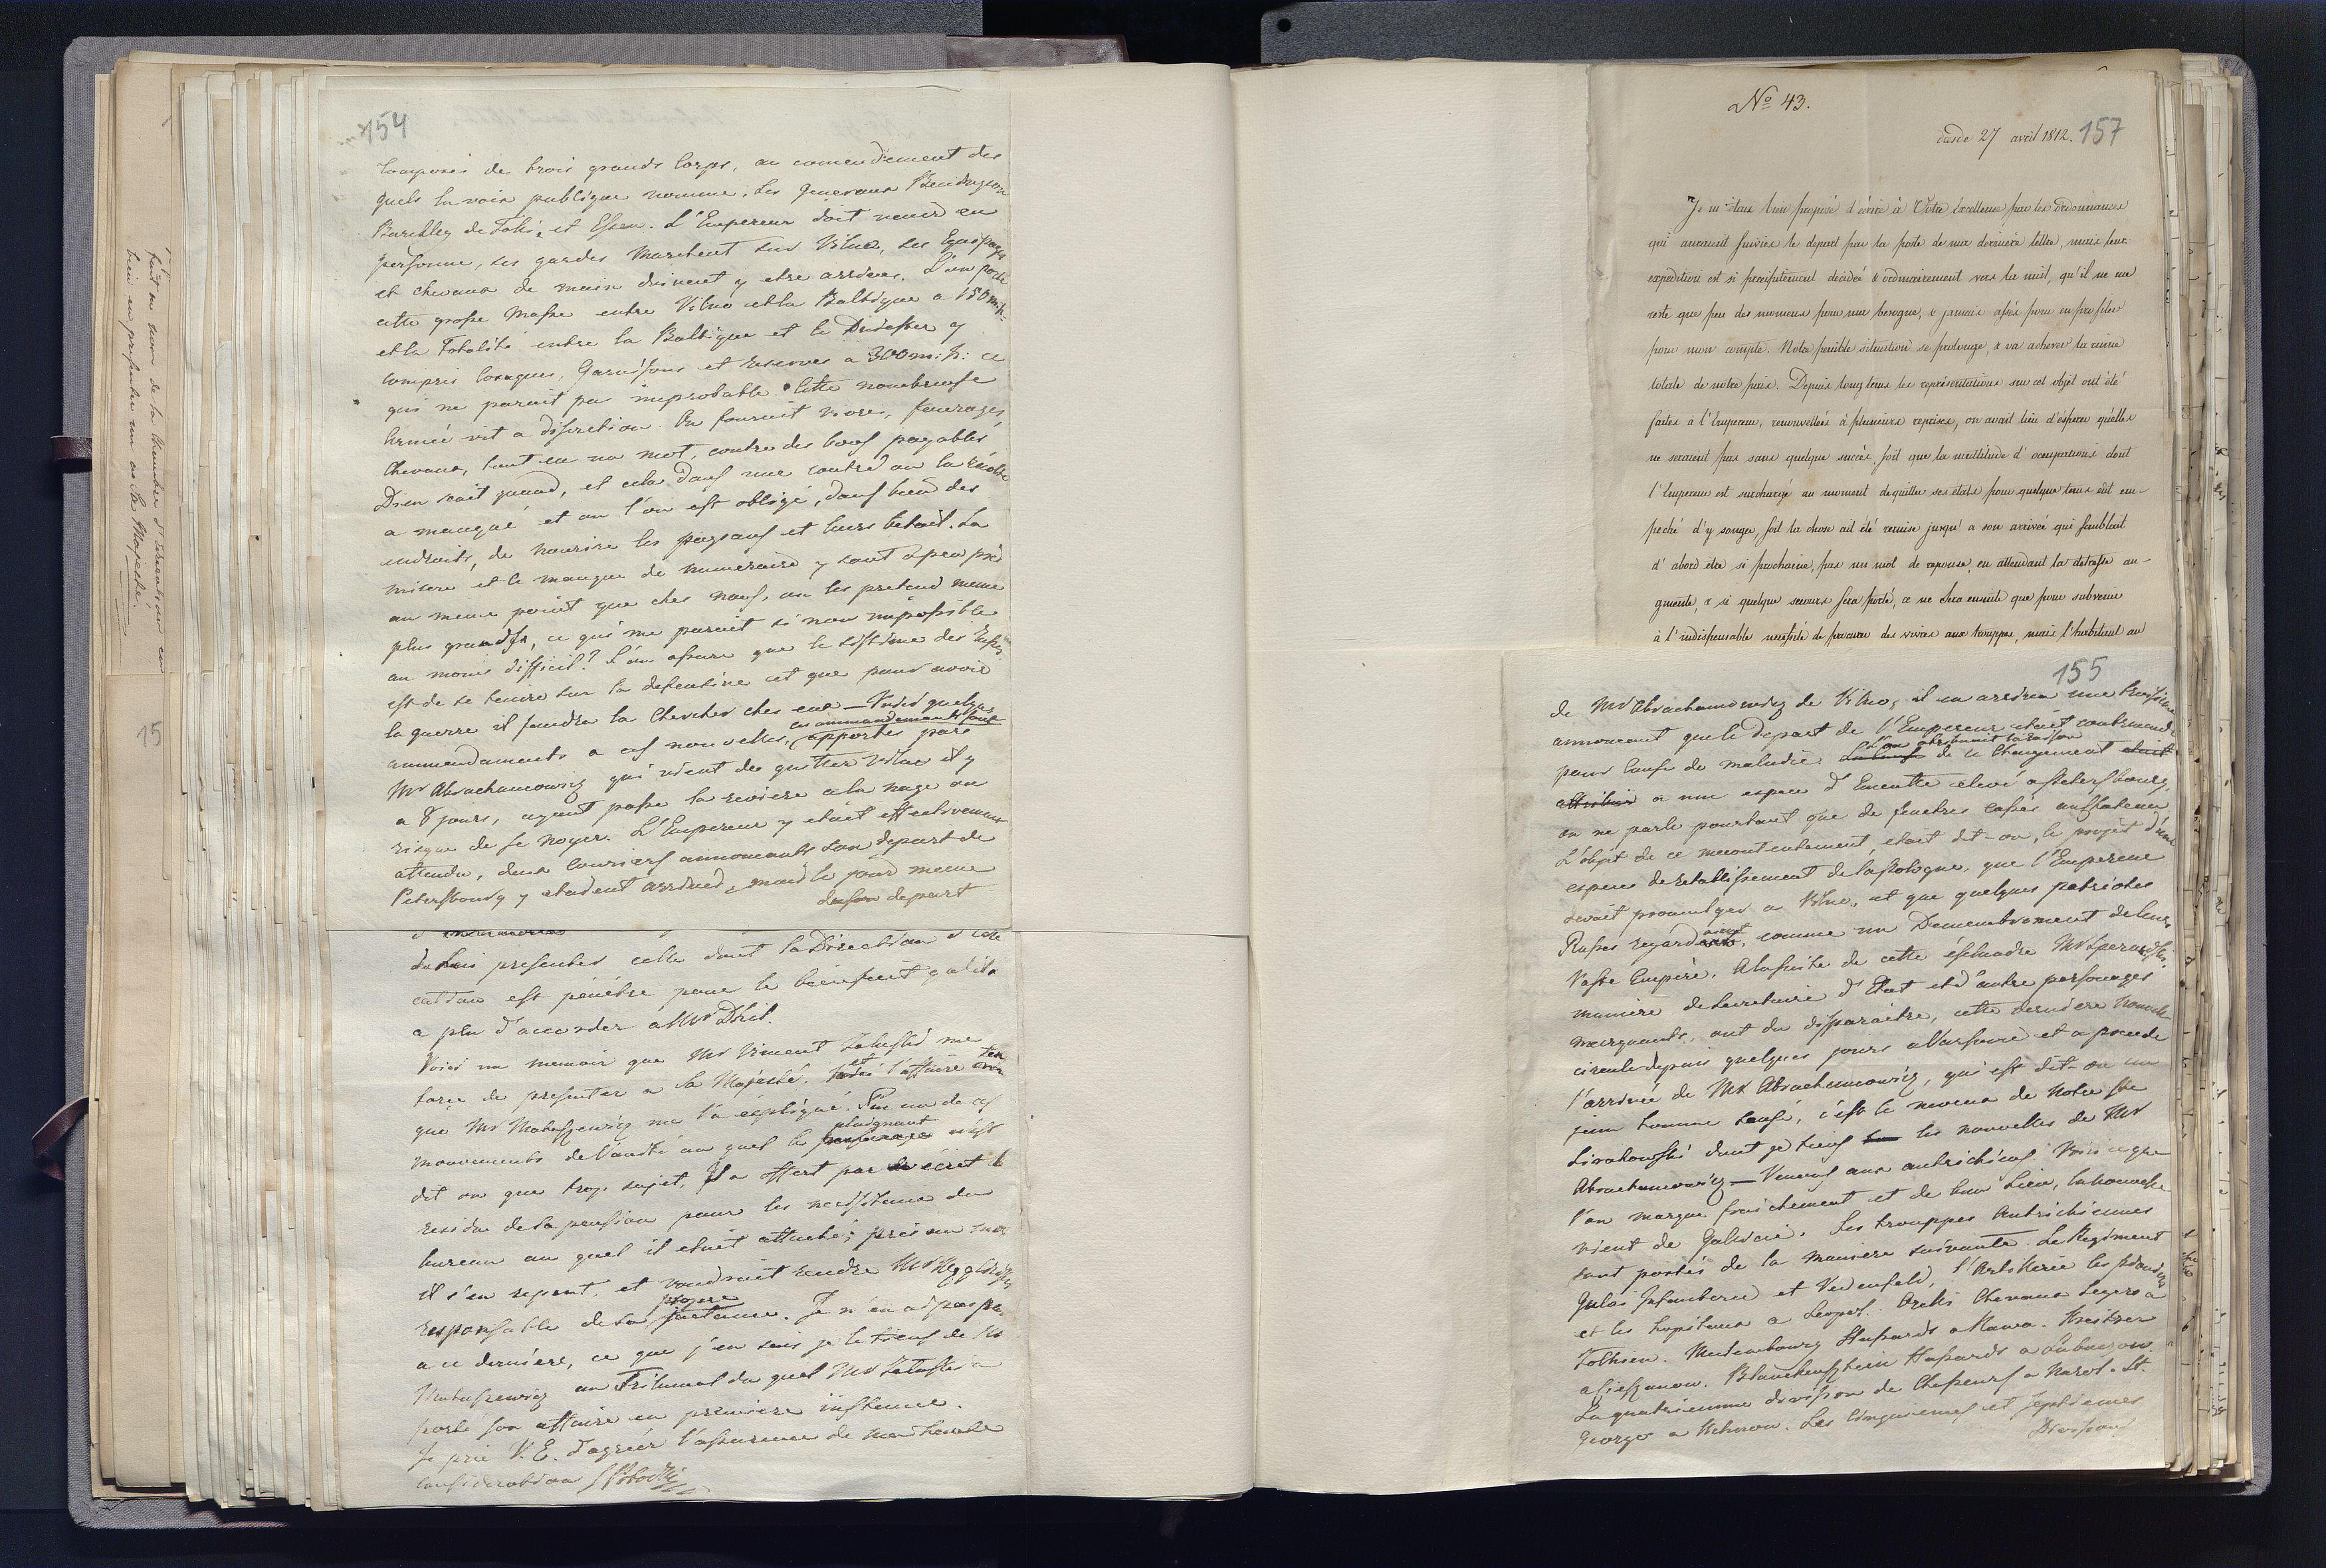 154
composés de trois grands Corps, au comendement des
quels la voix publique nomme, les Generaux Beningson
Barkley de Toli, et Essen. L'Empereur doit venir en
personne, ses gardes Marchent sur Vilna, ses Equipages
et chevaux de main doivent y etre arrivés. L'on porte
cette grosse Masse entre Vilno et la Baltique a 150 m:h:
et la Totalité entre la Baltique et le Dniester y
compris Cosaques, Garnisons et reserves a 300 m: h: ce
qui ne parait pas improbable. Cette nombreuse
Armée vit a discretion. On fournit vivres, fourages,
Chevaux, tout en un mot, contre des bons payables
Dieu scait quand, et cela dans une contré ou la récolte
a manqué et ou l'on est obligé, dans bien des
endroits, de nourire les paysans et leurs betail. La
misere et le manque de numeraire y sont a peu près
au meme point que ches nous, on les pretend meme
plus grands, ce qui me parait si non impossible
au moins difficil? L'on assure que le sistême des Russes
est de se tenire sur la defensive et que pour avoir
la guerre il faudra la Chercher ches eux — Voici quelques
ammendaments a ces nouvelles, apportés par
ces ammandemants sont
Mr Abrachamowicz qui vient de quitter Vilna il y
a 8 jours, ayant passé la riviere a la nage au
risque de se noyer. L'Empereur y etait effectivement
attendu, deux Couriers annoncants son depart de
Petersbourg y etaient arrivés, mais le jour meme
de son depart
presenter celle dont la Direction d'
est pénétré pour le bienfait qu'il
a plu d'accorder a Mr Diril.
Voici un memoir que Mr Vincent me
de presenter a Sa Majesté. l'affaire
que Mr Matuszewicz me l'a expliqué. Par un de ces
mouvements de vanité au quel le plaignant n'est
dit on que trop sujet, Il a offert par écrit le
residu de sa pension pour les du
bureau au quel il etait attaché;
il s'en repent, et voudrait rendre Mr
responsable de sa propre jactance. Je n'en ai pas parlé
a ce derniere, ce que j'en sais je le tiens de Mr
Matuszewicz au Tribunal du quel Mr a
porté son affaire en premiere instance.
Je prie V. E. d'agréer l'assurance de ma haute
consideration
fait au nom de la Chambre d'
bien en presenter un a Sa Majesté.
15
No 43.
27 avril 1812. 157
Je m'étais bien proposé d'écrire à Votre Excellence par les ordonnances
qui auraient suivies le depart par la poste de ma dernière lettre, mais leur
expedition est si precipitement decidée & ordinairement vers la nuit, qu'il ne me
reste que peu des momens pour ma besogne, & jamais assés pour en profiter
pour mon compte. Notre penible situation se prolonge, & va achever la ruine
totale de notre pais. Depuis longtems les représentations sur cet objet ont été
faites à l'Empereur, renouvellées à plusieurs reprises, on avait lieu d'esperer qu'elles
ne seraient pas sans quelque succès. Soit que la multitude d'occupations dont
l'Empereur est surchargé au moment de quitter ses états pour quelque tems eût em-
peché d'y songer, soit la chose ait été remise jusqu'a son arrivée qui semblait
d'abord être si prochaine, pas un mot de reponse, en attendant la detresse au-
gmente, & si quelque secours sera porté, ce ne sera ensuite que pour subvenir
à l'indispensable necessité de procurer des vivres aux trouppes, mais l'habitant au
155
de Mr Abrachamowicz de Vilno, il en arriva une troisieme
annoncant que le depart de l'Empereur etait contremandé
pour Cause de maladie. L'on attribuait la raison de ce Changement
a une espece d'Emeutte elevé a Petersbourg,
on ne parle pourtant que de fenetres cassés au Chateau
L'objet de ce mecontentement, etait dit-on, le projet d'une
espece de retablissement de la Pologne, que l'Empereur
devait promulguer a Vilno, et que quelques patriotes
Russes regardaient, comme un Demembrement de leur
Vaste Empire. A la suite de cette esclandre Mr Speranski
maniere de Secretaire d'Etat et d'autre personages
marquants, ont du disparaitre, cette derniere nouvelle
circule depuis quelques jours a Varsovie et a precedé
l'arrivée de Mr Abrachamowicz, qui est dit-on un
jeun homme sensé, c'est le neveu de notre
dont je tiens les nouvelles de Mr
Abrachamowicz — Venons aux autrichiens. Voici ce que
l'on marque fraichement et de bon Lieu, la nouvelle
vient de Galicie. Les trouppes Autrichiennes
sont postés de la maniere suivante. Le Regiment
Infanterie et, l'Artillerie les
et les hopitaux a Leopol. Chevaux Legers a
Zolkiew. Hussards a Rawa.
a Cieszanow. Blankenstein Hussards a Lubaczow.
La quatrieme division de Chasseurs a Narol. St.
George a. Les Cinquiemes et septiemes
Divisions